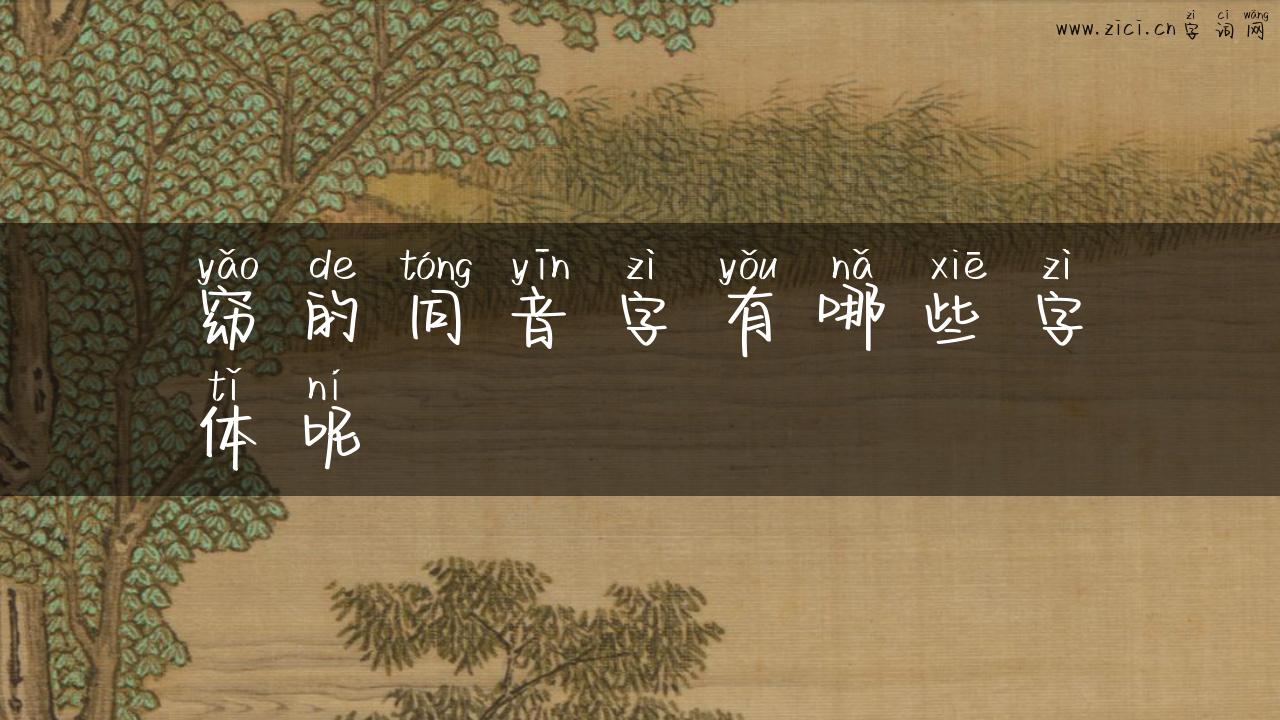 zì cí wǎng
www.zici.cn 字词网
yǎo de tóng yīn zì yǒu nǎ xiē zì
窈的同音字有哪些字
tǐ ní
体呢